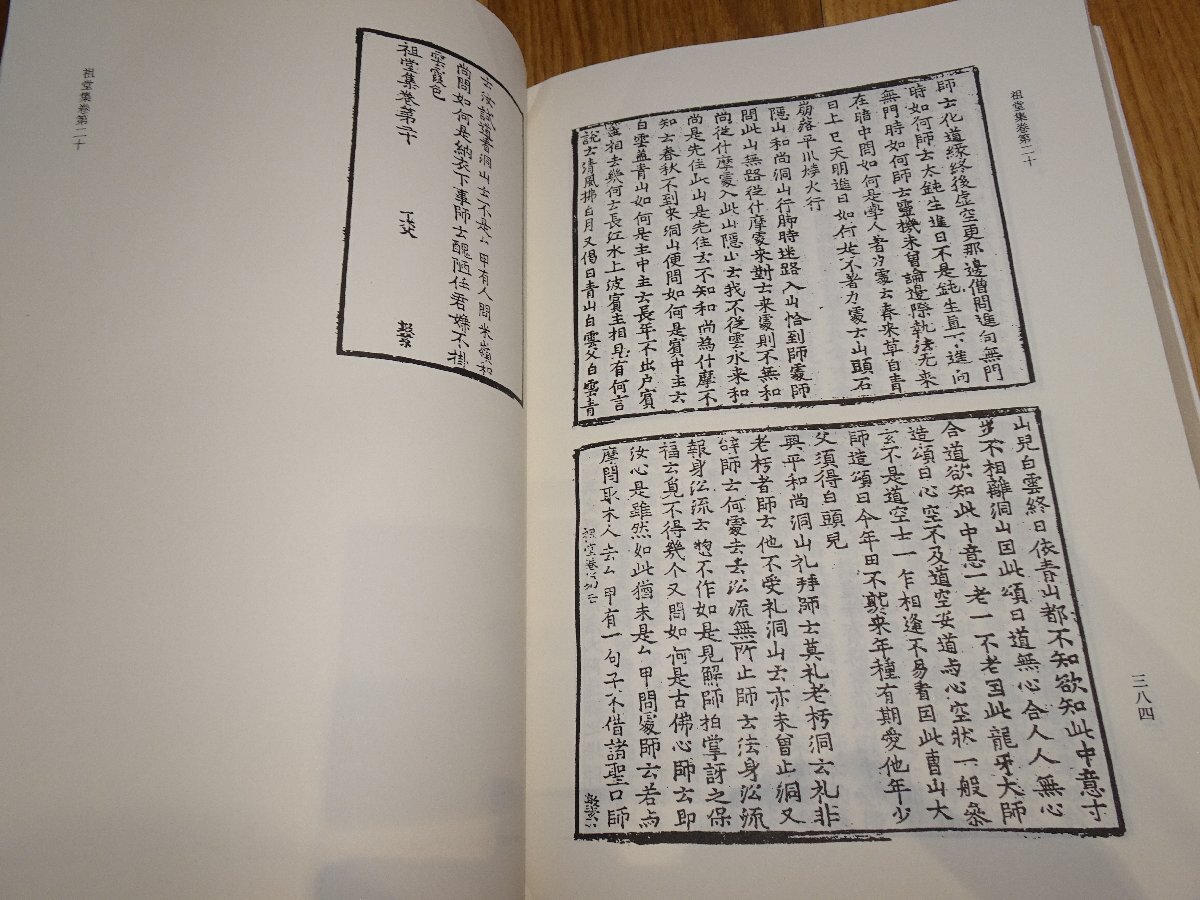 祖堂集卷第二十
師云化道緣終後虛空更那邊僧問進句無門
時如何師云太鈍生進日不是鈍生直下進向
無門時如何師云靈機未曾論邊際執法无来
在暗中問如何是學人著力處云春来草自青
日上已天明進日如何是不著力處云山頭石
崩落平川燒火行
隱山和尚洞山行脚時迷路入山恰到師處師
問此山無路從什摩處来對云来處則不無和
尚從什摩處入此山隱山云我不從雲水来和
尚是先住此山是先住云不知和尚為什摩不
知云春秋不到来洞山便問如何是賓中主云
白雲蓋青山如何是主中主云長年不出户賓
主相去幾何云長江水上波賓主相見有何言
說云清風拂白月又偈日青山白雲父白雲青
山兒白雲終日依青山都不知欲知此中意寸
步不相離洞山因此頌日道無心合人人無心
合道欲知此中意一老一不老因此龍牙大師
造頌日心空不及道空安道与心空狀一般叅
玄不是道空士一乍相逢不易看因此曹山大
師造頌日今年田不熟来年種有期愛他年少
父須得白頭兒
興平和尚洞山礼拜師云莫礼老朽洞云礼非
老朽者師云他不受礼洞山云亦未曾止洞又
辝師云何處去云㳂流無所止師云法身㳂流
報身㳂流云惣不作如是見解師拍掌訝之保
福云覓不得幾个又問如何是古佛心師云即
汝心是雖然如此猶未是ム甲問處師云若与
摩問取木人去ム甲有一句子不借諸聖口師
三八四
祖堂集卷第二十
云汝試道看洞山云不是ム甲有人問米嶺和
尚問如何是納衣下事師云醜陋任君嫌不掛
雲霞色
祖堂集卷第二十